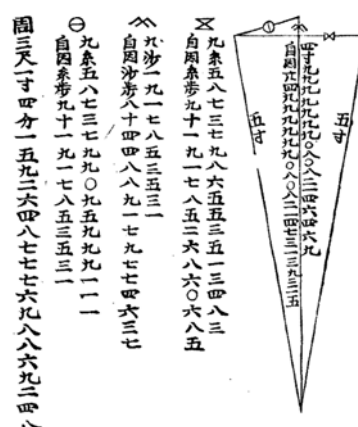 五寸
五寸
四寸九九九九九九九〇八〇八二一四六四六九
自因 四九九九九九九〇八〇八二一四七三一三九三一五
九糸五八七三七九八六五五三五一三四八三
自因糸步九十一九一七八五二六八六〇六八五
九沙一九一七八五三五三一
自因沙步八十四四八八九一七九七七四六三七
九糸五八七三七九九〇九五九九九一一一
自因糸步九十一九一七八五三五三一
周三尺一寸四分一五九二六四八七七七六九八八六九二四八